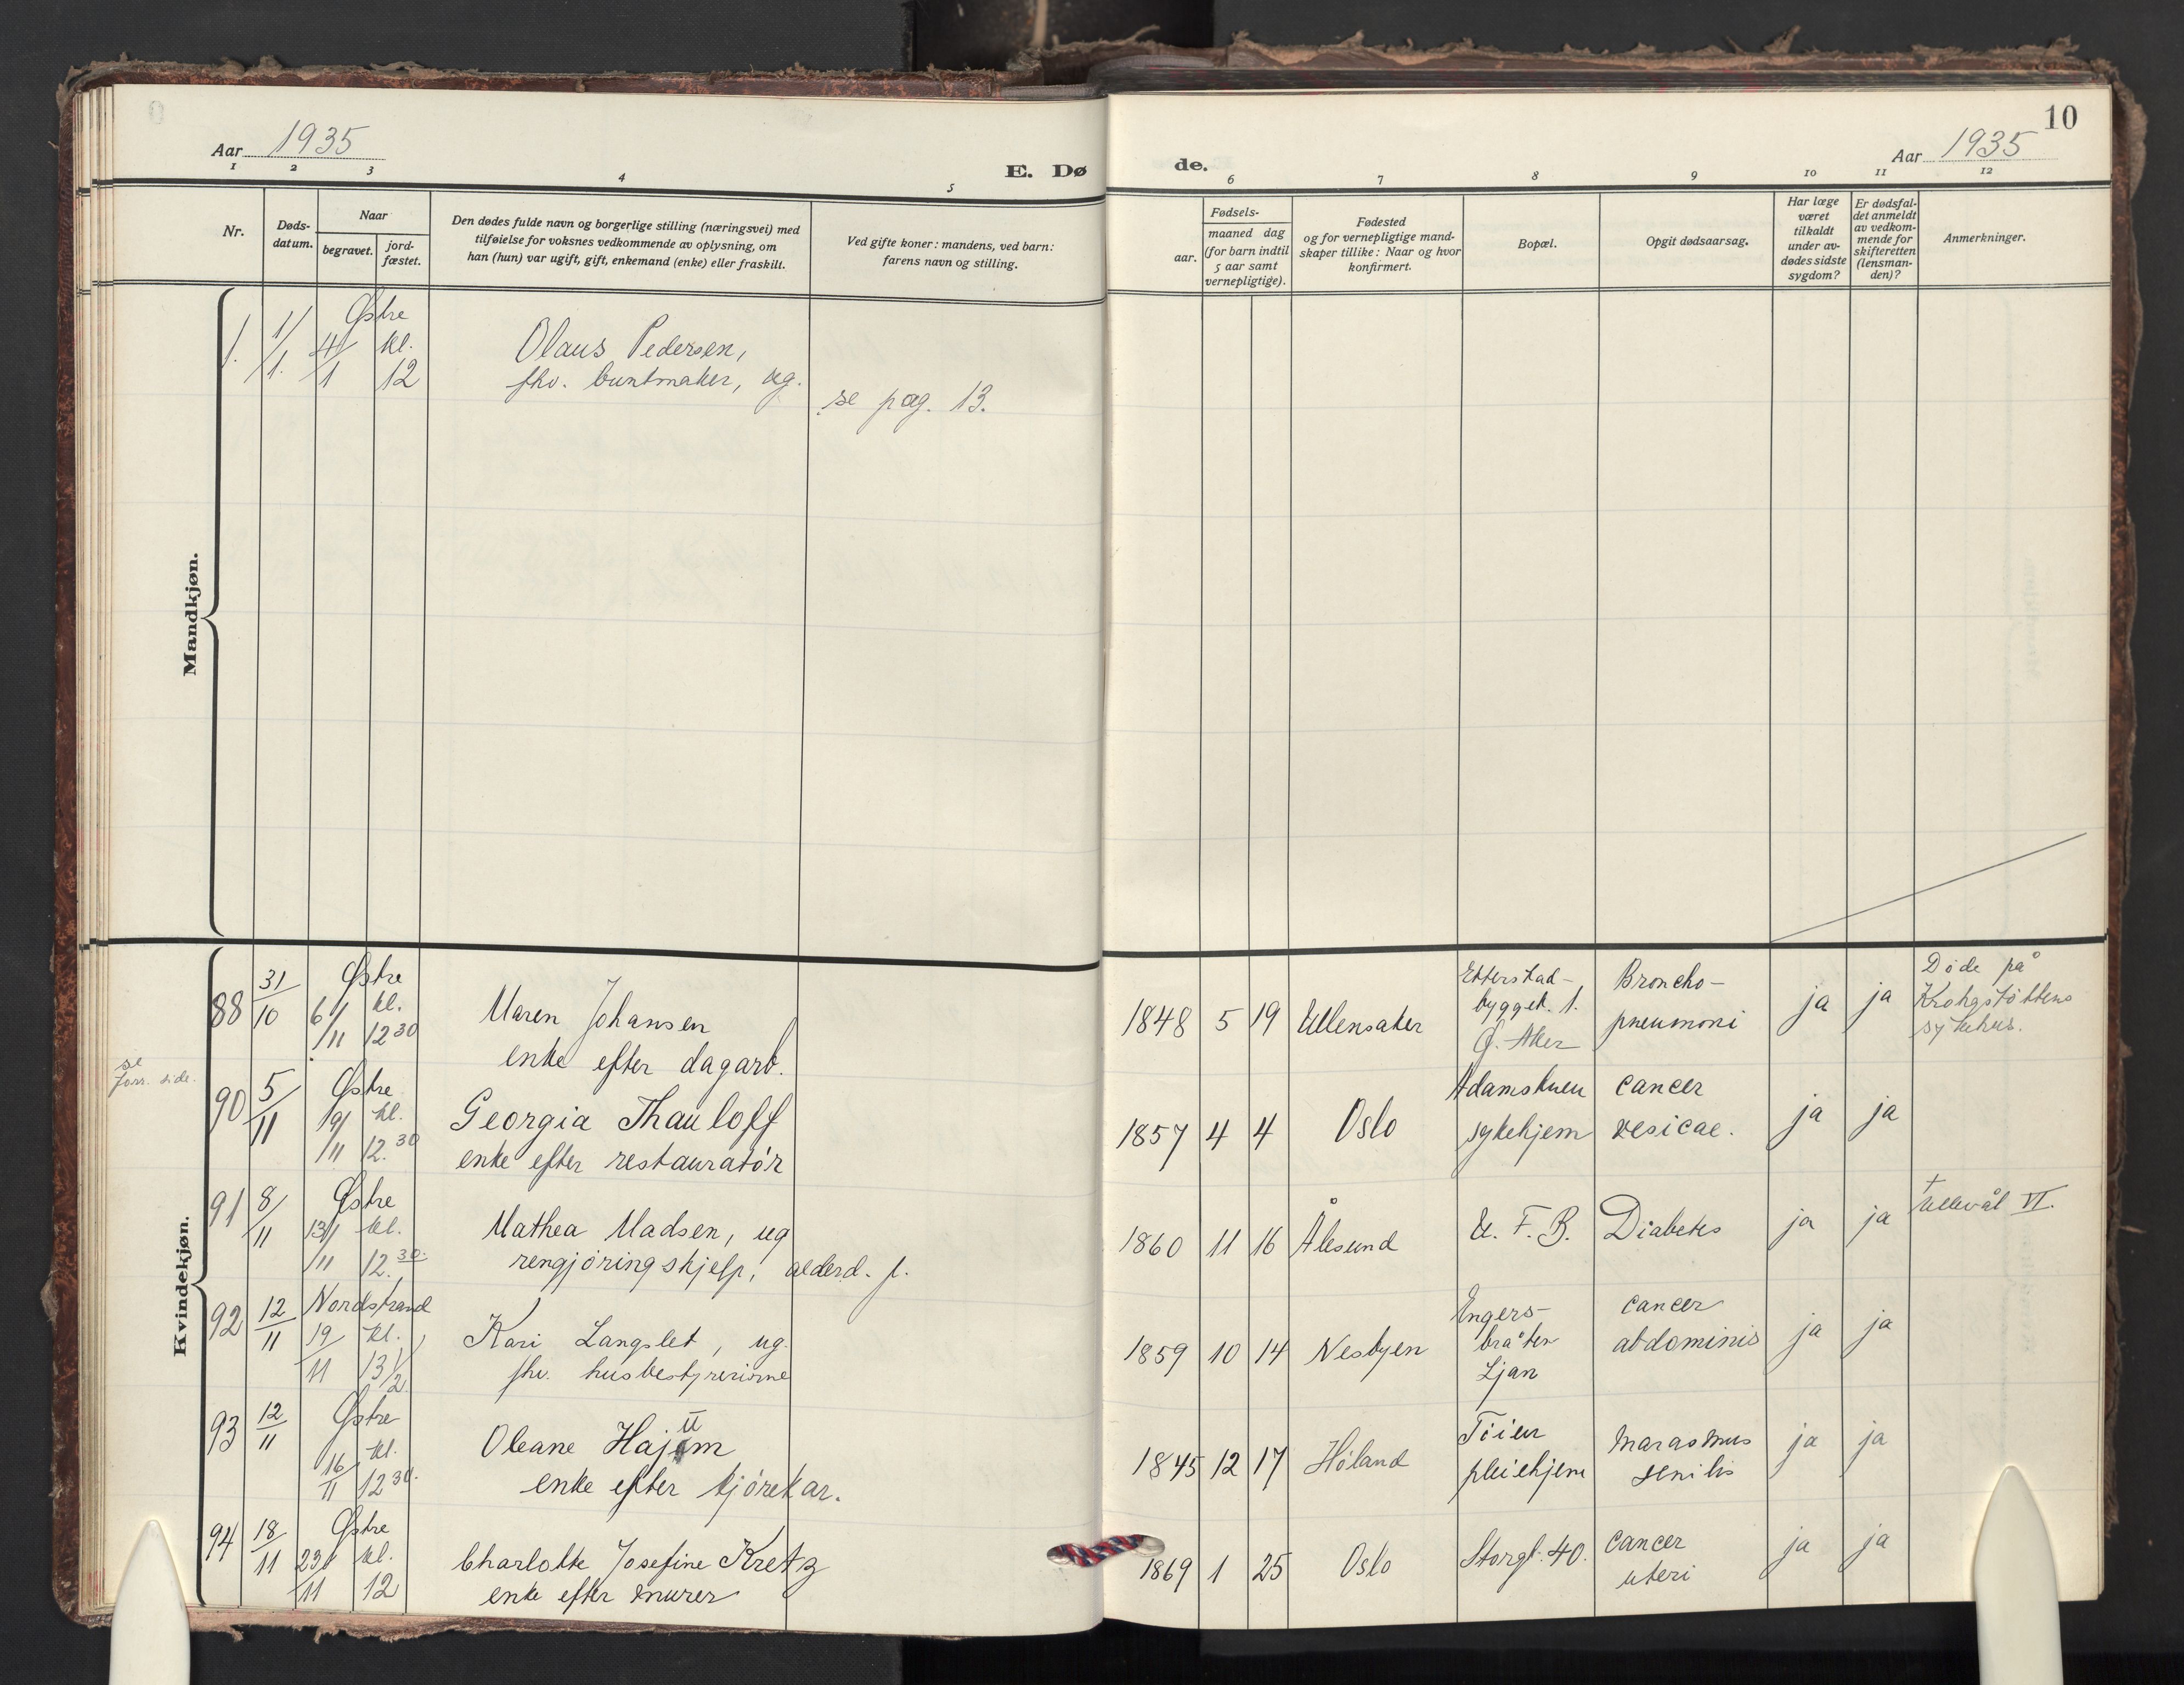 10
Aar 1935
E. Dø
de.
Aar 1935
1 2 3 4 5
6 7 8 9 10 11 12
Nr.
Døds-
datum.
Naar
begravet.
jord-
fæstet.
Den dødes fulde navn og borgerlige stilling (næringsvei) med
tilføielse for voksnes vedkommende av oplysning, om
han (hun) var ugift, gift, enkemand (enke) eller fraskilt.
Ved gifte koner: mandens, ved barn:
farens navn og stilling.
Fødsels-
aar.
maaned dag
(for barn indtil
5 aar samt
vernepligtige).
Fødested
og for vernepligtige mand-
skaper tillike: Naar og hvor
konfirmert.
Bopæl.
Opgit dødsaarsag.
Har læge
været
tilkaldt
under av-
dødes sidste
sygdom?
Er dødsfal-
det anmeldt
av vedkom-
mende for
skifteretten
(lensman-
den)?
Anmerkninger.
Mandkjøn.
1. 1/1. Østre
4/1 kl. 12
Olaus Pedersen,
fhv. buntmaker, ug.
se pag. 13.
Kvindekjøn.
88 31/10 Østre
6/11 kl. 12 30
Maren Johansen
enke efter dagarb.
1848 5 19 Ullensaker
Etterstad-
bygget. 1.
Ø. Aker
Broncho-
pneumoni
ja ja
Døde på
Krohgstøttens
sykehus.
se
forr. side.
90 5/11 Østre
19/11 kl. 12.30
Georgia Thauloff
enke efter restauratør
1857 4 4 Oslo
Adamstuen
sykehjem
cancer
vesicae.
ja ja
91 8/11 Østre
13/11 kl. 12.30
Mathea Madsen, ug
rengjøringshjelp, alderd. f.
1860 11 16 Ålesund
U. F. B.
Diabetes
ja ja
†
Ullevål VI.
92 12/11 Nordstrand
19/11 kl. 13 1/2
Kari Langslet, ug.
fhv. husbestyrerinne
1859 10 14 Nesbyen
Engers-
bråten
Ljan
cancer
abdominis
ja ja
93 12/11 Østre
16/11 kl. 12 30.
Oleane Hajum
enke efter kjørekar.
1845 12 17 Høland
Tøien
pleiehjem
marasmus
senilis
ja ja
94 18/11 Østre
23/11 kl. 12
Charlotte Josefine Kretz
enke efter murer
1869 1 25 Oslo
Storgt. 40.
cancer
uteri
ja ja